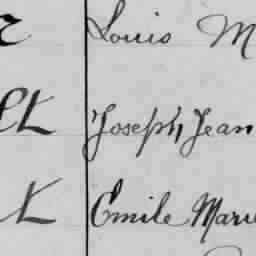 Louis M
Joseph Jean
Emile Marie